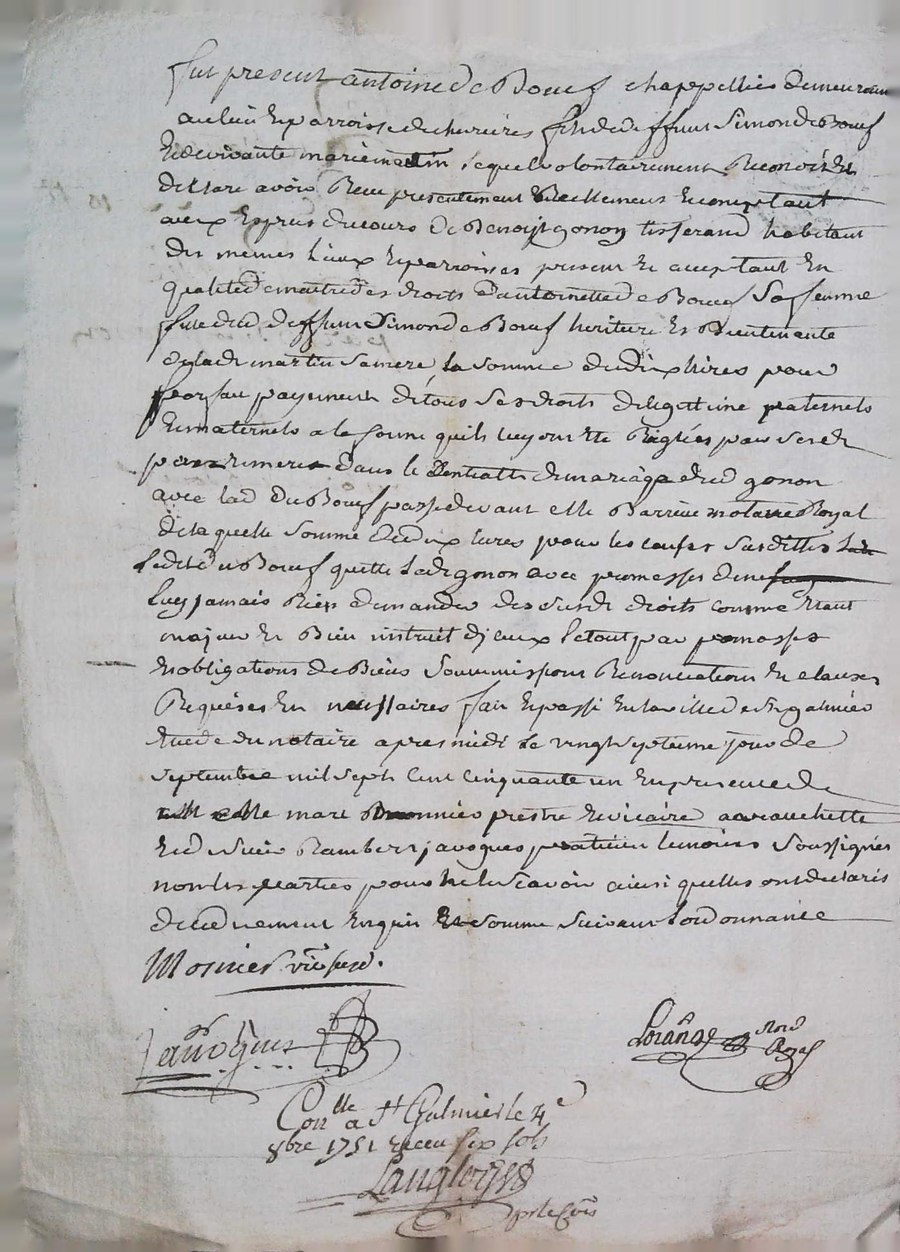 fut present antoine de Boeuf chappellier demeurant
au lieu & parroisse de fils de deffunt Simon de Boeuf
& de vivante marie martin lequel volontairement Reconoist &
declare avoir Receu presentement Reellement & comptant
aux Espris du cours de Benoist gonon tisserand habitant
des memes lieux & parroisses present & aceptant En
qualité de maitre des droits d'antoinette de Boeuf Sa femme
fille dud deffunt Simon de Boeuf heritiere & Bientenante
de lad martin sa mere la somme de dix livres pour
forfait payement de tous ses droits de legitime paternels
& maternels a la somme quils luy ont ete Reglées par sesd
pere & mere dans le Contratt de mariage dud gonon
avec lad du Boeuf passé devant Me Barrieu notaire Royal
de laquelle somme de dix livres pour les causes susdittes
led de Boeuf quitte led gonon avec promesses de ne
luy jamais Rien demander des susd droits comme Etant
majeur & Bien instruit d'jceux le tout par promesses
& obligations de Biens soummissions Renonciations & clauses
Requises & necessaires fait & passé En la ville de St galmier
Etude du notaire apres midi le vingt septieme jour de
septembre mil sept cent cinquante un En presence de
Me marc prestre & vicaire
& de sieur Rambert javogues praticien temoins Soussignés
non les parties pour ne le scavoir ainsi quelles ont declarés
de ce duement Enquis & somme suivant Lordonnance
Mosnier vic
Javogues
Lorange No.re Royal
Con.lle a St Galmier le 4e
8bre 1751 receu six sols
Langlois